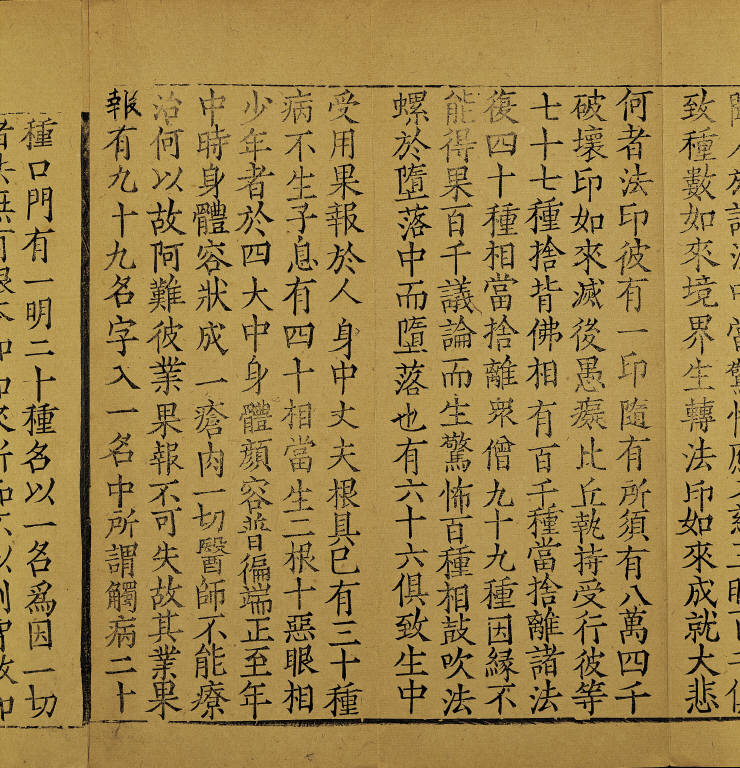 致種數如來境界生轉法印如來成就大悲
何者法印彼有一印隨有所須有八萬四千
破壞印如來滅後愚癡比丘執持受行彼等
七十七種捨背佛相有百千種當捨離諸法
復四十種相當捨離衆僧九十九種因緣不
能得果百千議論而生驚怖百種相鼓吹法
螺於墮落中而墮落也有六十六俱致生中
受用果報於人身中丈夫根具已有三十種
病不生子息有四十相當生二根十惡眼相
少年者於四大中身體顏容普徧端正至年
中時身體容狀成一瘡肉一切醫師不能療
治何以故阿難彼業果報不可失故其業果
報有九十九名字入一名中所謂觸病二十
種口門有一明二十種名以一名爲因一切